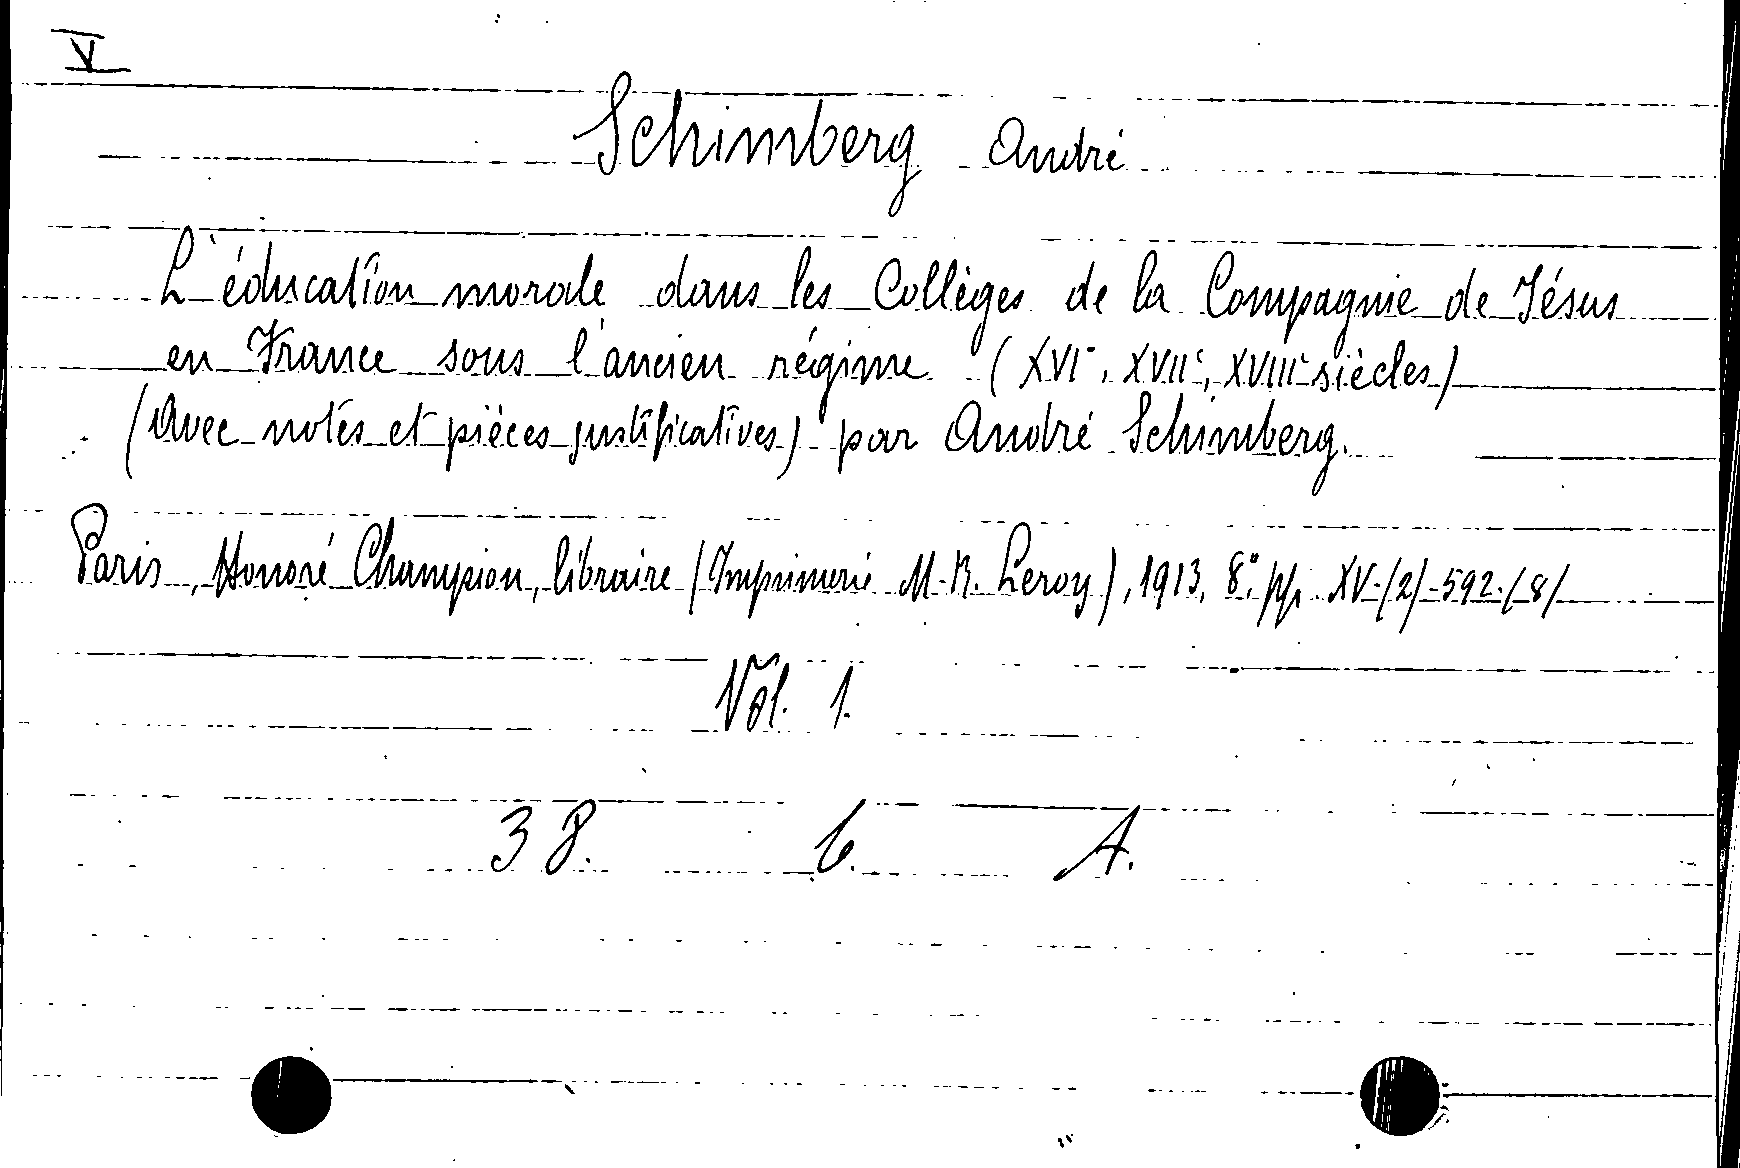 V
Schimberg André
L'éducation morale dans les Collèges de la Compagnie de Jésus
en France sous l'ancien régime (XVIe, XVIIe, XVIIIe siècles)
(Avec notes et pièces justificatives) par André Schimberg.
Paris, Honoré Champion, libraire (Imprimerie M. R. Leroy), 1913, 8°, pp. XV-(2)-592-(8)
Vol. 1.
38. 6. A.